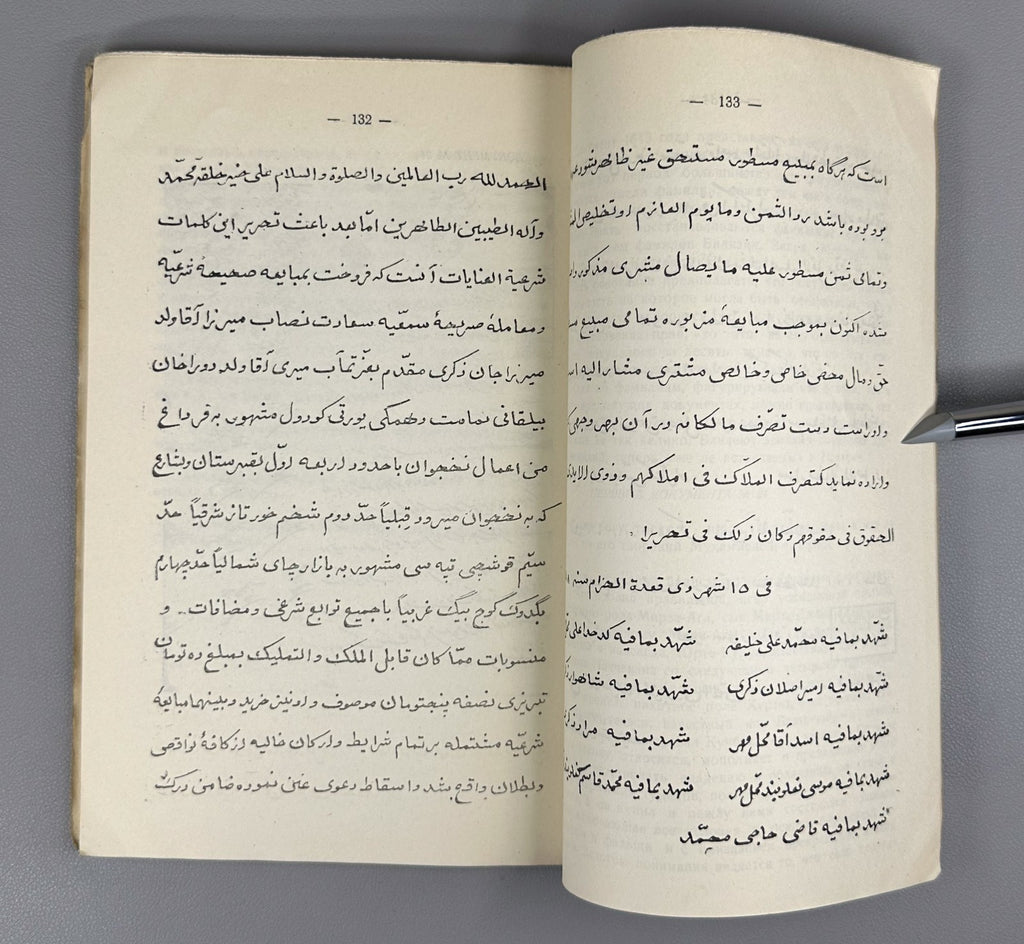 — 132 —
الحمد لله رب العالمین والصلوة والسلام علی خیر خلقه محمّد
وآله الطیبین الطاهرین امّا بعد باعث تحریر این کلمات
شرعیة الغایات آنست که فروخت بمبایعه صحیحهٔ شرعیّه
ومعاملهٔ صریحهٔ سمعّیه سعادت نصاب میرزا آقا ولد
میرزاجان ذکری مقدّم بعزّتمآب میری آقا ولد دوراخان
بیلقانی تمامت وهمکی یورتی کوردول مشهور به قراداغ
من اعمال نخجوان باحدود اربعه اوّل بقبرستان وبشارع
که به نخجوان میرود قبلیاً حدّ دوم شخم خورتانز شرقیاً حدّ
سیّم قوشچی تپه سی مشهور به بازارچای شمالیاً حدّ چهارم
بگدوک کوج بیگ غربیاً باجمیع توابع شرعی ومضافات و
منسوبات ممّا کان قابل الملک والتملیک بمبلغ ده تومان
تبریزی نصفه پنجتومان موصوف واونین خرید وبینهما مبایعهٔ
شرعیّه مشتمله بر تمام شرایط وارکان خالیه از کافهٔ نواقص
وبطلان واقع شد واسقاط دعوی غبن نموده ضامن درک
— 133 —
است که هرگاه بمبیع مسطور مستحق غیر ظاهر شود
بوده باشد رد الثمن وما یوم الغانرم اوتخلیص
وتمامی ثمن مسطور علیه ما یصال مشتری مذکور
شده اکنون بموجب مبایعهٔ مزبوره تمامی مبیع
حقّ ومال محض خاص وخالص مشتری مشار الیه
واوراست دست تصرّف مالکانه در آن بهر وجهی
واراده نماید کتصرف الملاّک فی املاکهم وذوی
الحقوق فی حقوقهم وکان ذلک فی تحریرا
فی ۱۵ شهر ذی قعدة الحرام سنه
شهّد بمافیه محمّد علی خلیفه شهّد بمافیه کدخدا علی
شهّد بمافیه امیر اصلان ذکری شهّد بمافیه شاهوار
شهد بمافیه اسد آقا محّل مهر شهد بمافیه مراد
شهد بمافیه موسی محّل مهر شهد بمافیه محمّد قاسم
شهد بمافیه قاضی حاجی محمّد